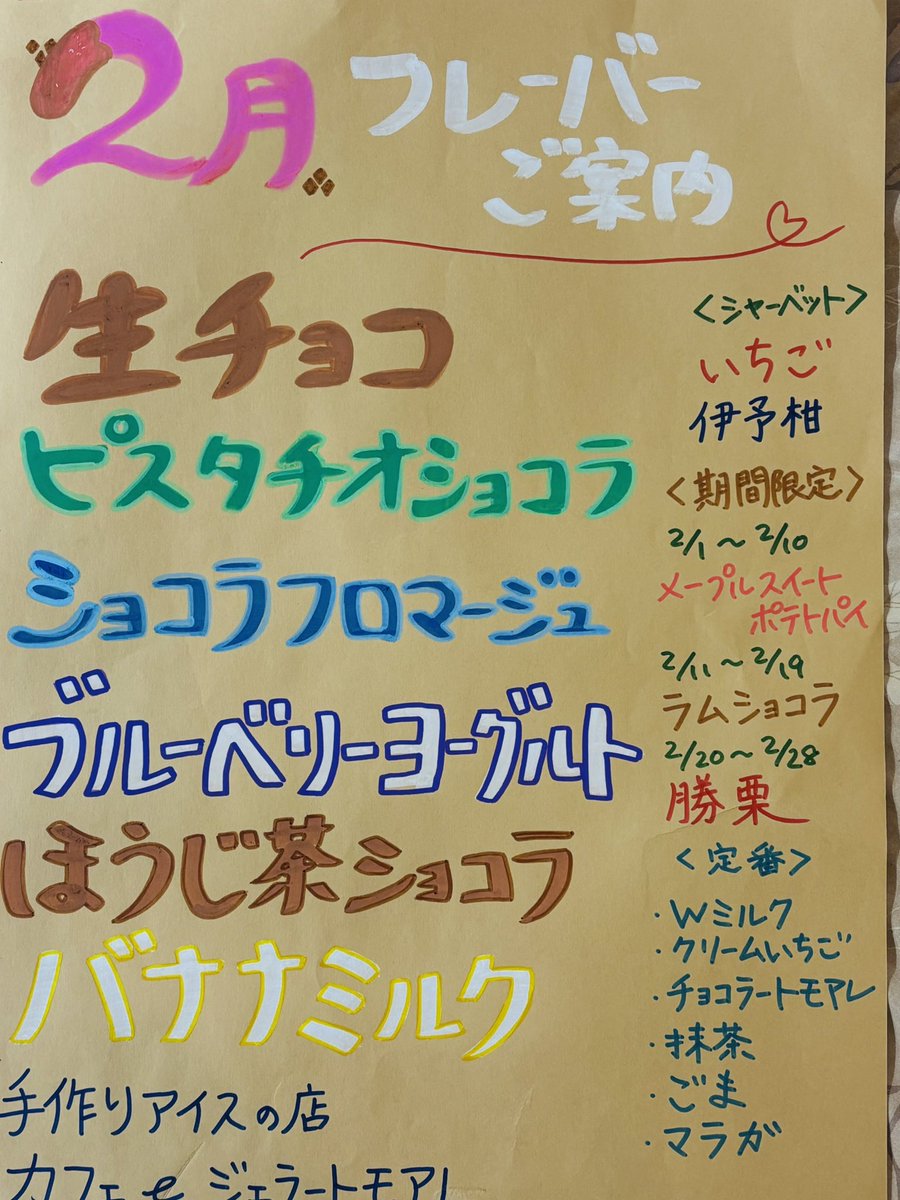 2月 フレーバー
ご案内
生チョコ
ピスタチオショコラ
ショコラフロマージュ
ブルーベリーヨーグルト
ほうじ茶ショコラ
バナナミルク
手作りアイスの店
カフェ e ジェラートモアレ
<シャーベット>
いちご
伊予柑
<期間限定>
2/1～2/10
メープルスイート
ポテトパイ
2/11～2/19
ラムショコラ
2/20～2/28
勝栗
<定番>
・Wミルク
・クリームいちご
・チョコラートモアレ
・抹茶
・ごま
・マラガ